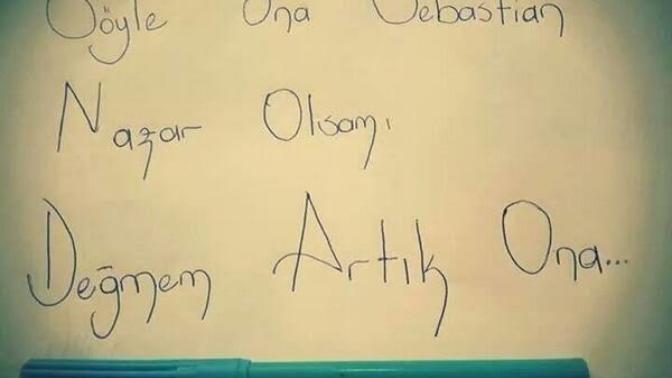 Söyle Ona Sebastian
Nazar Olsamı
Değmem Artık Ona...